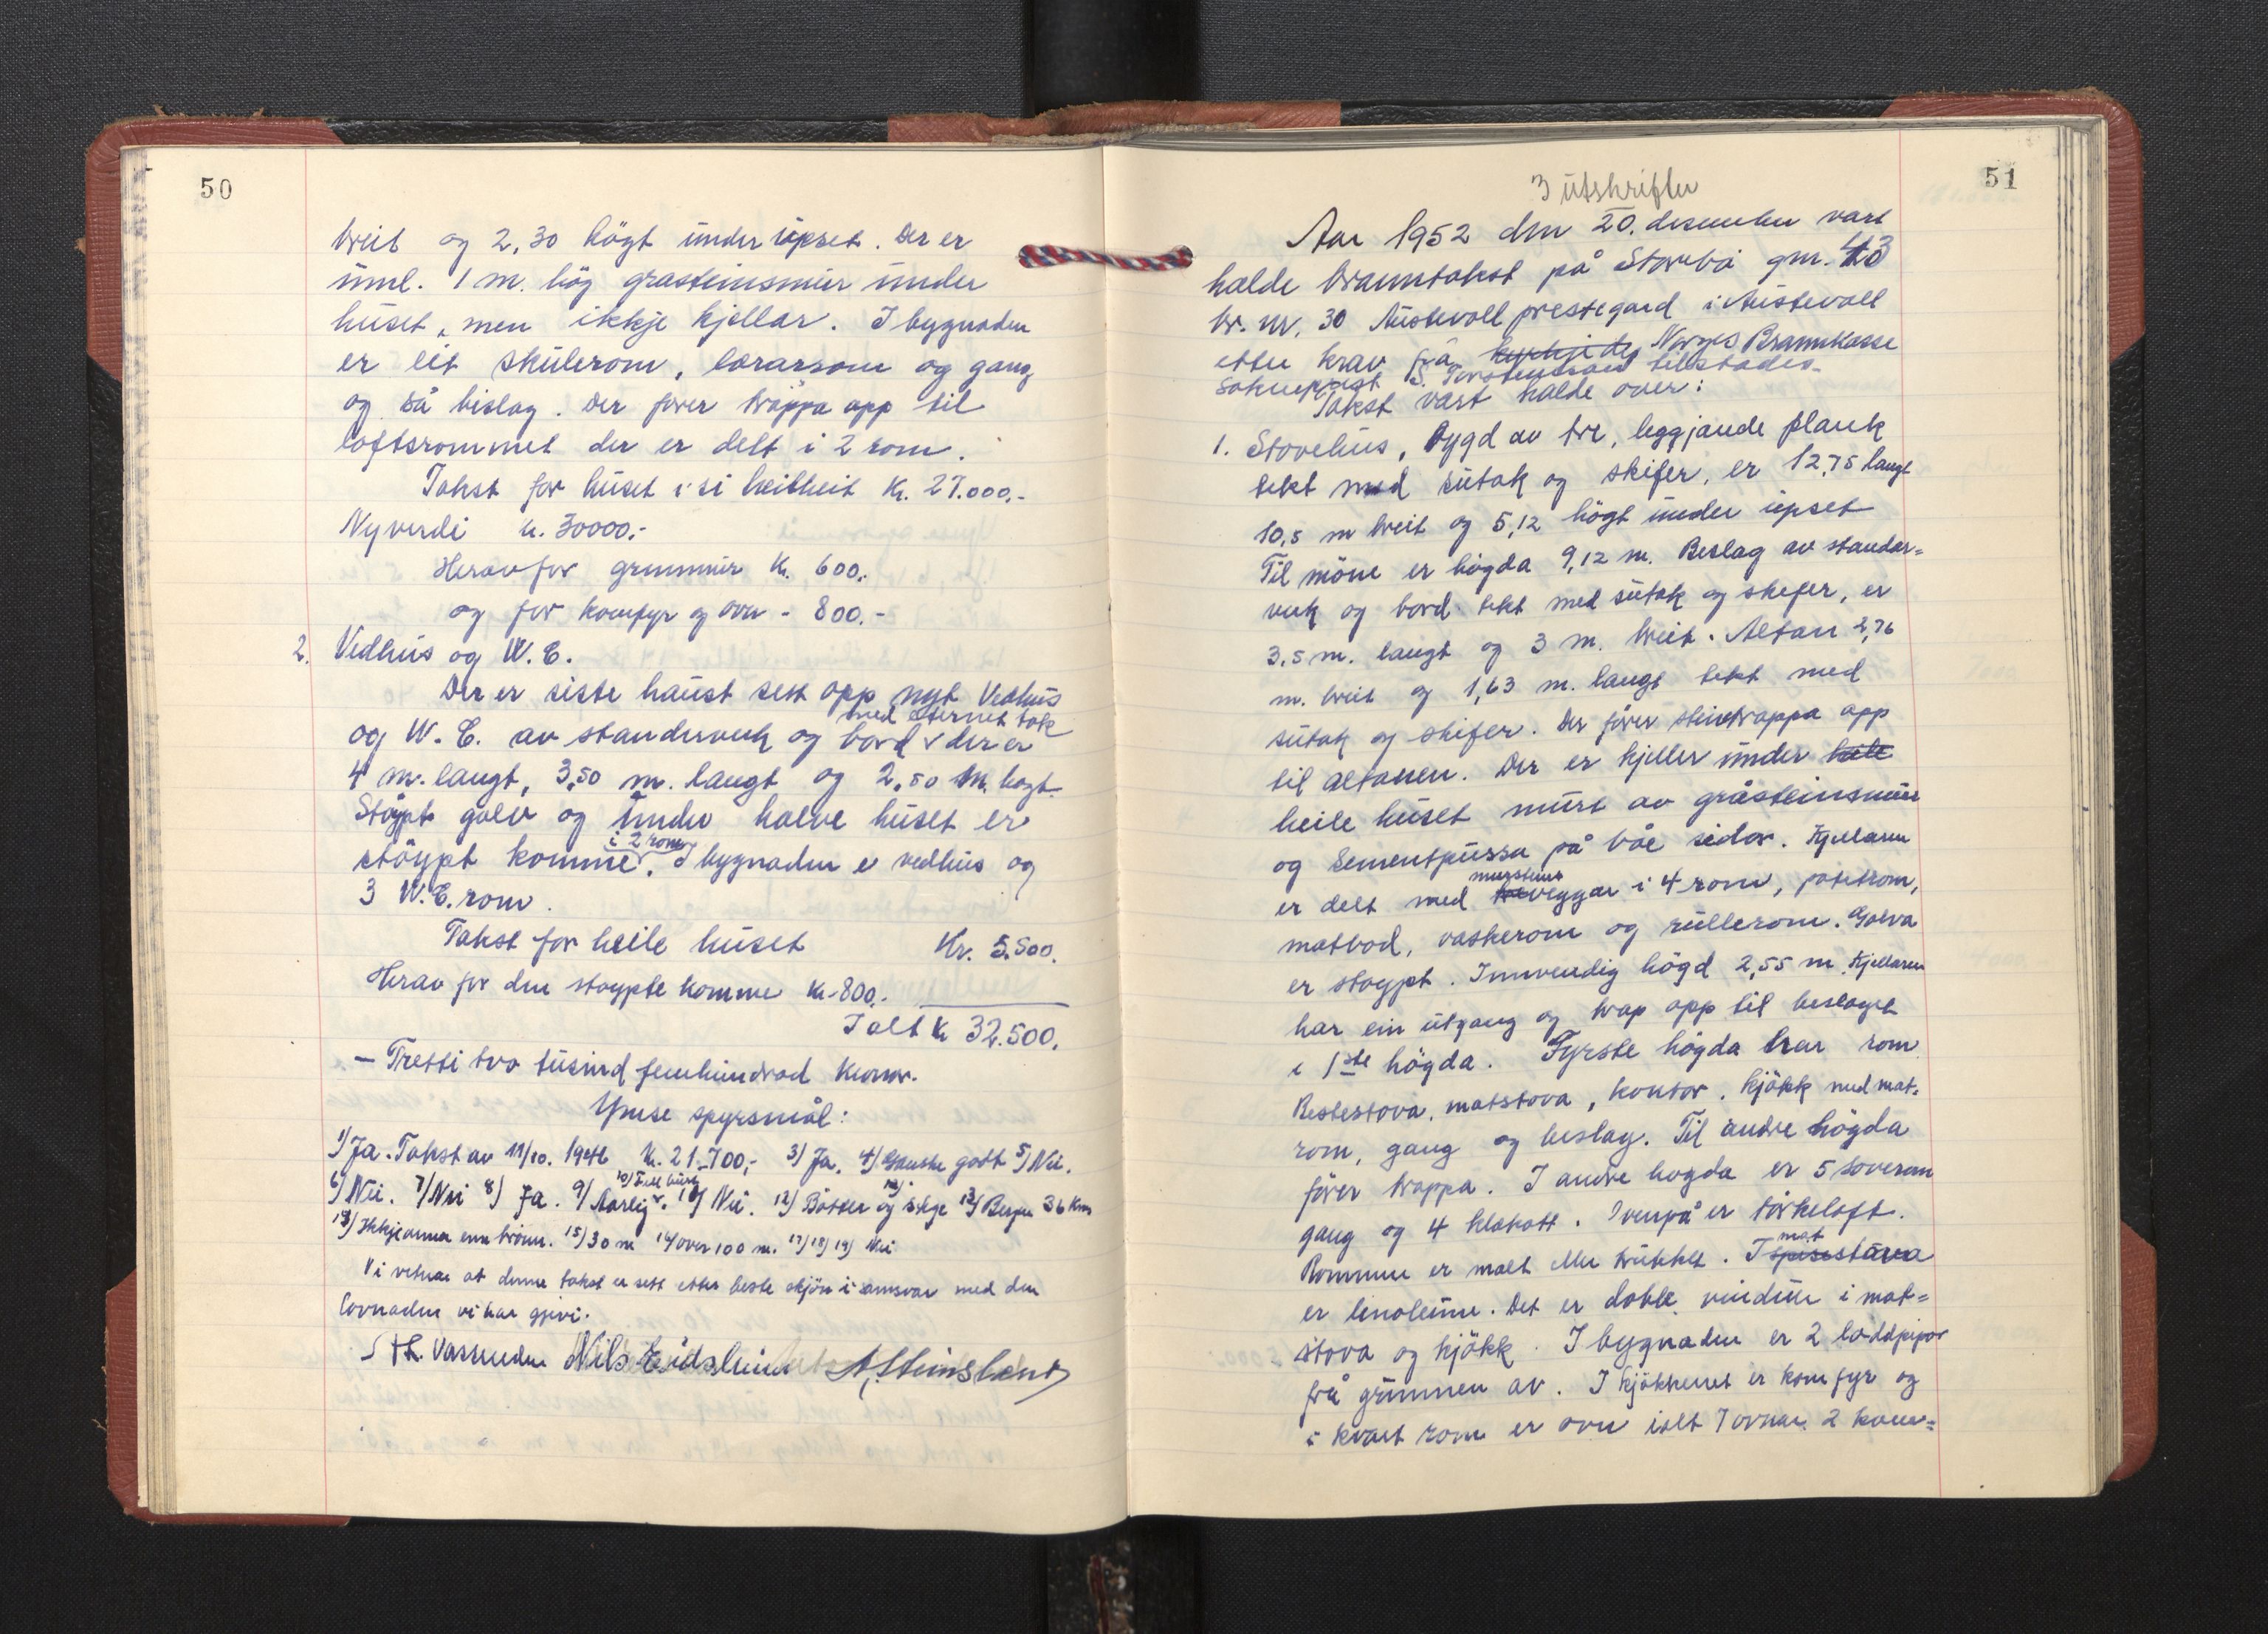 50
breit og 2,30 högt under upset. Der er
uml. 1 m. hög grasteinsmur under
huset, men ikkje kjellar. I bygnaden
er eit skulerom, lærarrom og gang
og så bislag. Der fører trappa opp til
loftsrommet der er delt i 2 rom.
Takst for huset i si heilheit Kr. 27.000.-
Nyverdi kr. 30000.-
Herav for grunnmur Kr. 600.-
og for komfyr og ovn - 800.-
2. Vedhus og W.C.
Der er siste haust sett opp nyt Vedhus
med eternit tak
og W.C. av standerverk og bord v der er
4 m. langt, 3,50 m. langt og 2,50 m. högt.
Støypt golv og under halve huset er
i 2 rom
støypt komme. I bygnaden er vedhus og
3 W.C. rom.
Takst for heile huset Kr. 5.500.
Herav for den støypte komme Kr. 800.-
Ialt Kr 32.500.
- Tretti two tusind femhundrad Kronor.
Ymse spyrsmål:
1) Ja. Takst av 11/10. 1946 Kr. 21.700,- 3) Ja. 4) Ganske godt 5) Nei.
10) Til husb
6) Nei. 7) Nei 8) Ja. 9) Aarleg. 11) Nei. 12) Bøtter og stige 13) Bergen 36 Km
13) Ikkje anna enn brönn. 15) 30 m 16) over 100 m. 17) 18) 19) Nei
Vi vitnar at denne takst er sett etter beste skjön i samsvar med den
lovnaden vi har gjevi.
H. Vassenden Nils Eidsheim A. Steinsland
51
3 utskrifter
Aar 1952 den 20. desember vart
halde branntakst på Storebö gnr. 43
br. nr. 30 Austevoll prestegard i Austevoll
etter krav frå kyrkje dep Norges Brannkasse
Sokneprest S. Torstensson tilstades.
Takst vart halde over:
1. Stovehus, bygd av tre, leggjande plank
tekt med sutak og skifer, er 12,75 langt
10,5 m breit og 5,12 högt under upset
Til möne er högda 9,12 m. Beslag av standar=
verk og bord tekt med sutak og skifer, er
3,5 m. langt og 3 m. breit. Altan 2,76
m. breit og 1,63 m. langt tekt med
sutak og skifer. Der fører steintrappa opp
til altanen. Der er kjeller under heile
heile huset murt av gråsteinsmur
og Sementpussa på båe sidor. Kjellaren
murstens
er delt med treveggar i 4 rom, potetrom,
matbod, vaskerom og rullerom. Golva
er støypt. Innvendig högd 2,55 m. Kjellaren
har ein utgang og trap opp til beslaget
i 1ste högda. Fyrste högda har rom
Bestestova, matstova, kontor, kjökk med mat=
rom, gang og beslag. Til andre högda
fører trappa. I andre högda er 5 soverom
gang og 4 klekott. Ovenpå er törkeloft.
mat
Rommen er malt eller trukket. I spisestova
er linoleum. Det er doble vindu i mat=
stova og kjökk. I bygnaden er 2 loddpipor
frå grunnen av. I kjökkenet er komfyr og
i kvart rom er ovn ialt 7 ovnar 2 kom=